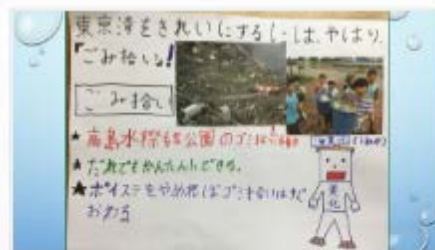 東京湾をきれいにするには、やはり、
「ごみ拾い」!
ごみ拾い
★高島水際線公園のゴミ拾い
★だれでもかんたんにできる。
★ポイステをやめればゴミ拾いはすぐ
おわる
美化